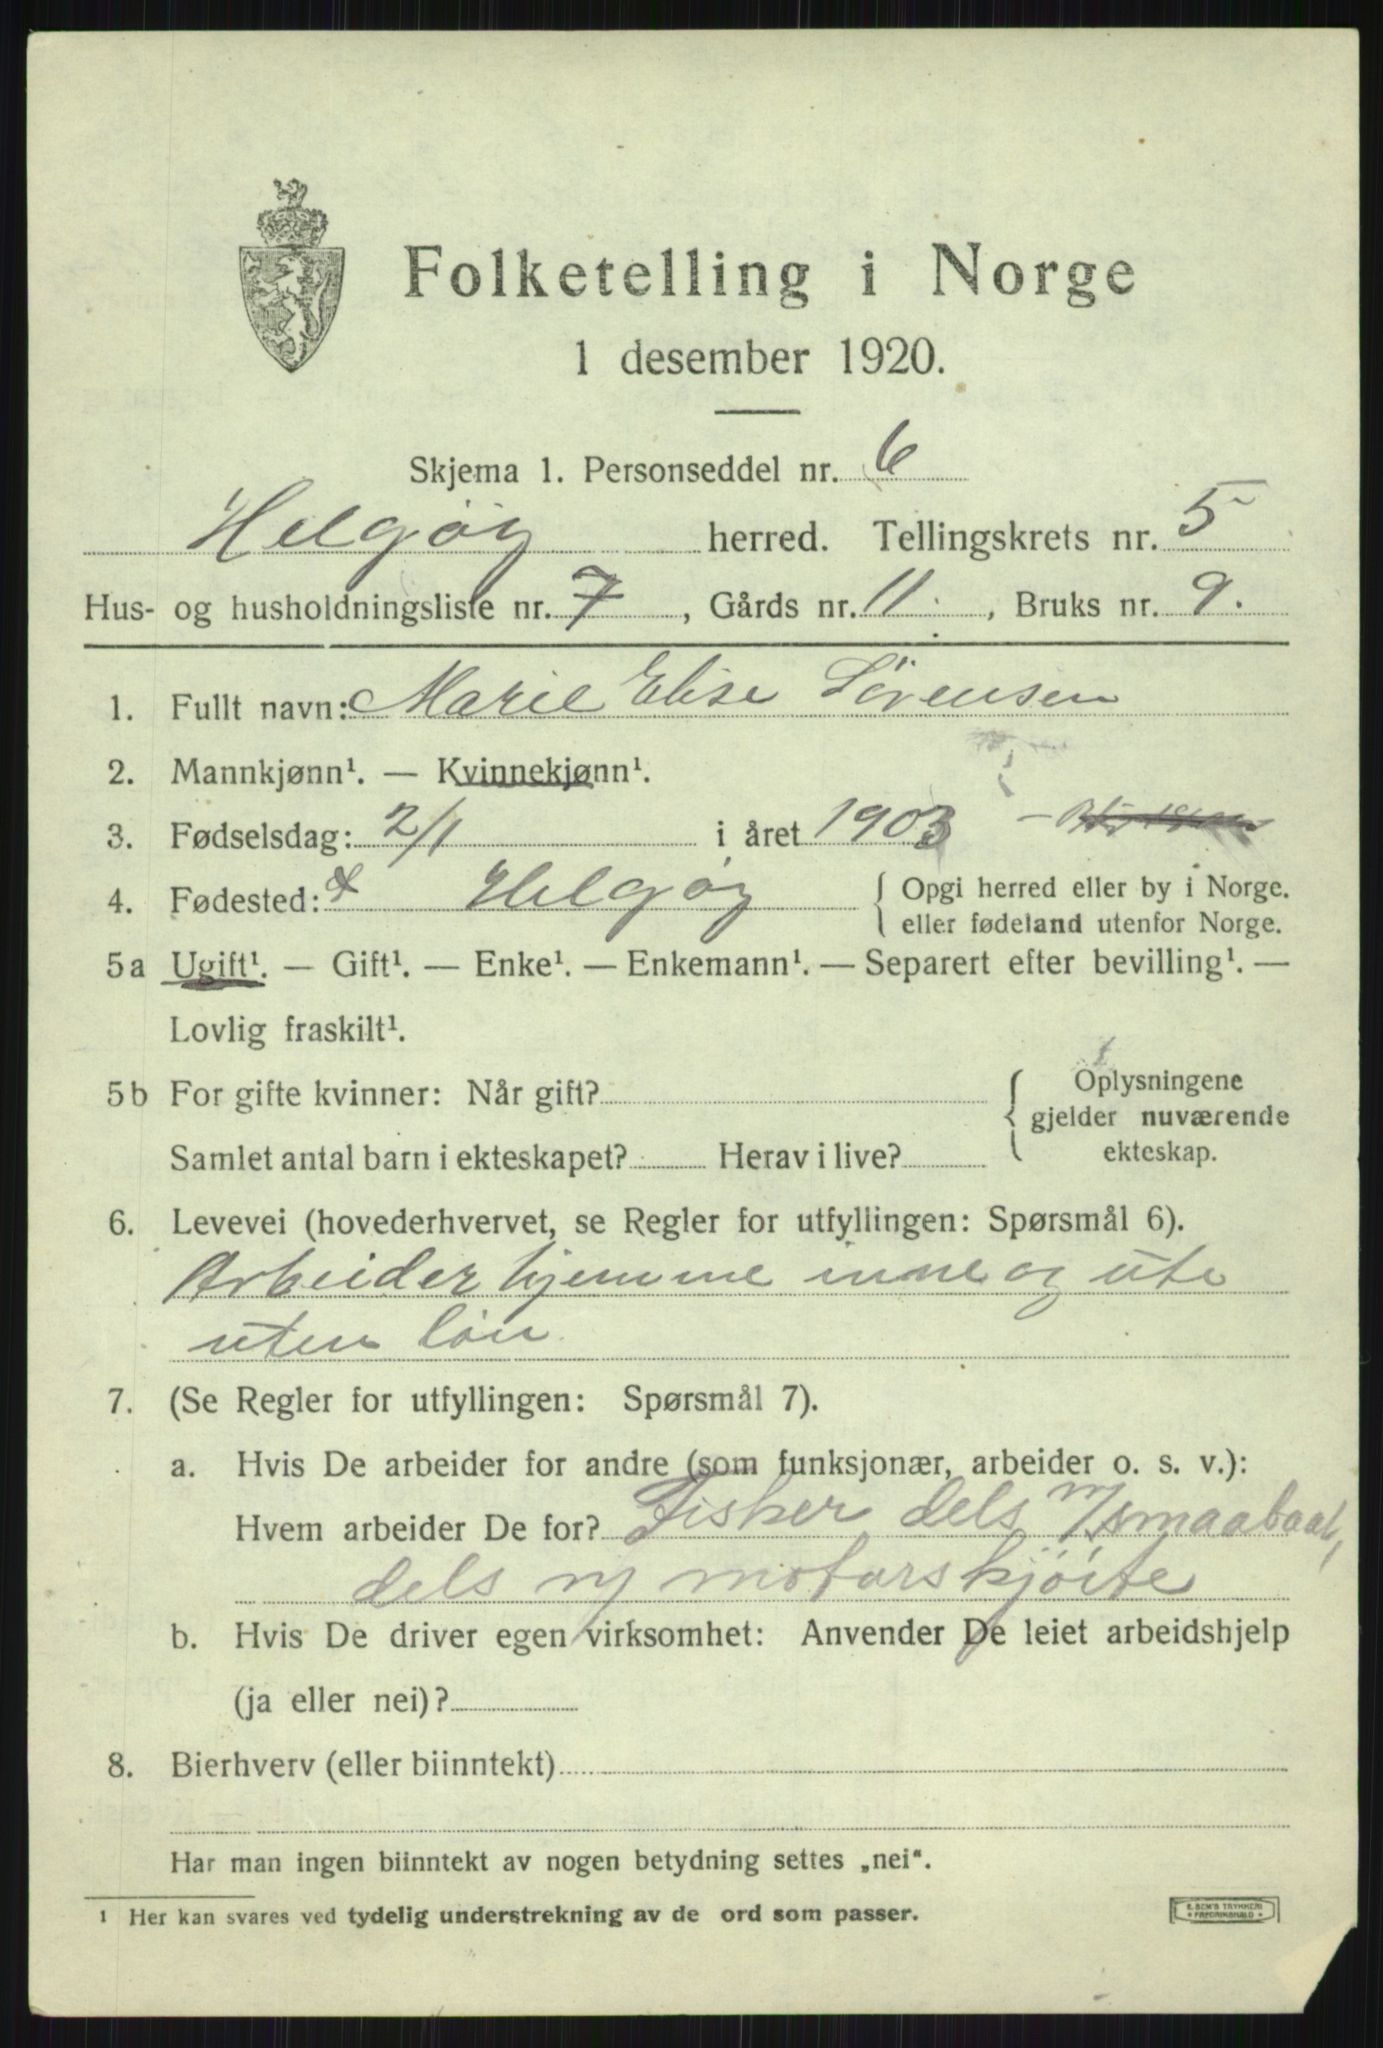 Folketelling i Norge
1 desember 1920.
Skjema 1. Personseddel nr. 6
Helgøy herred. Tellingskrets nr. 5
Hus- og husholdningsliste nr. 7, Gårds nr. 11, Bruks nr. 9.
1. Fullt navn: Marie Elise Sörensen
2. Mannkjønn¹. — Kvinnekjønn¹.
3. Fødselsdag: 2/1 i året 1903
4. Fødested: Helgøy { Opgi herred eller by i Norge.
eller fødeland utenfor Norge.
5a Ugift¹. — Gift¹. — Enke¹. — Enkemann¹. — Separert efter bevilling¹. —
Lovlig fraskilt¹.
5b For gifte kvinner: Når gift? { Oplysningene
gjelder nuværende
Samlet antal barn i ekteskapet? Herav i live? ekteskap.
6. Levevei (hovederhvervet, se Regler for utfyllingen: Spørsmål 6).
Arbeider hjemme inne og ute
uten lön
7. (Se Regler for utfyllingen: Spørsmål 7).
a. Hvis De arbeider for andre (som funksjonær, arbeider o. s. v.):
Hvem arbeider De for? Fisker dels m/smaabaat,
dels m/ motorskjöite
b. Hvis De driver egen virksomhet: Anvender De leiet arbeidshjelp
(ja eller nei)?
8. Bierhverv (eller biinntekt)
Har man ingen biinntekt av nogen betydning settes „nei“.
¹ Her kan svares ved tydelig understrekning av de ord som passer.
E. SEM'S TRYKKERI
FREDRIKSHALD